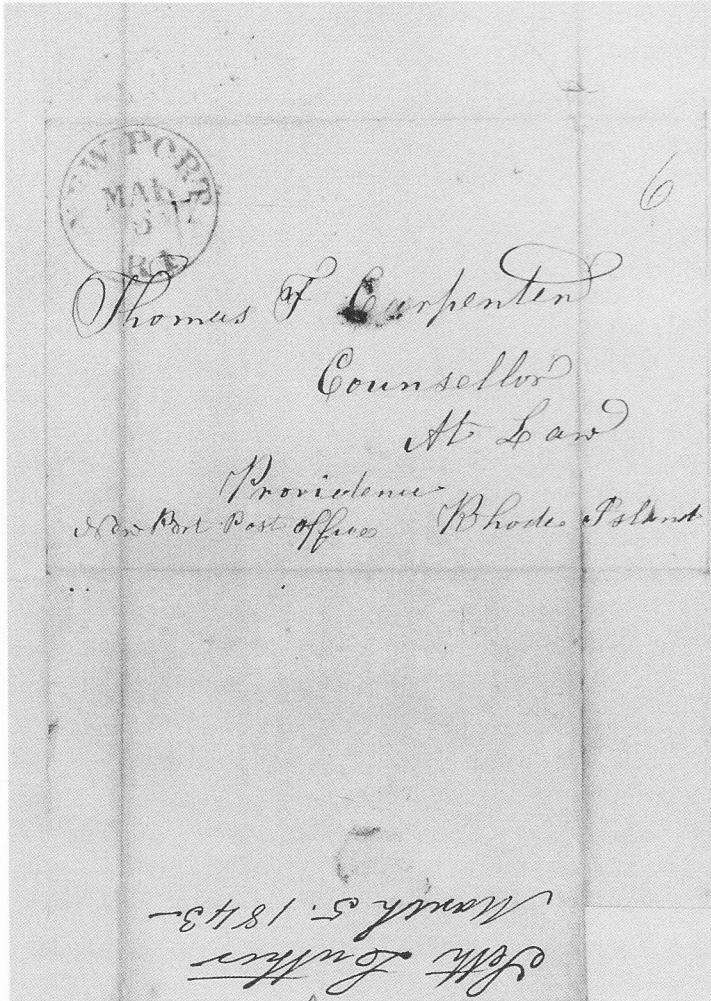 NEWPORT
MAR
5
R.I.
6
Thomas F Carpenter
Counsellor
At Law
Providence
New Port Post Office Rhode Island
Seth Luther
March 5. 1843-